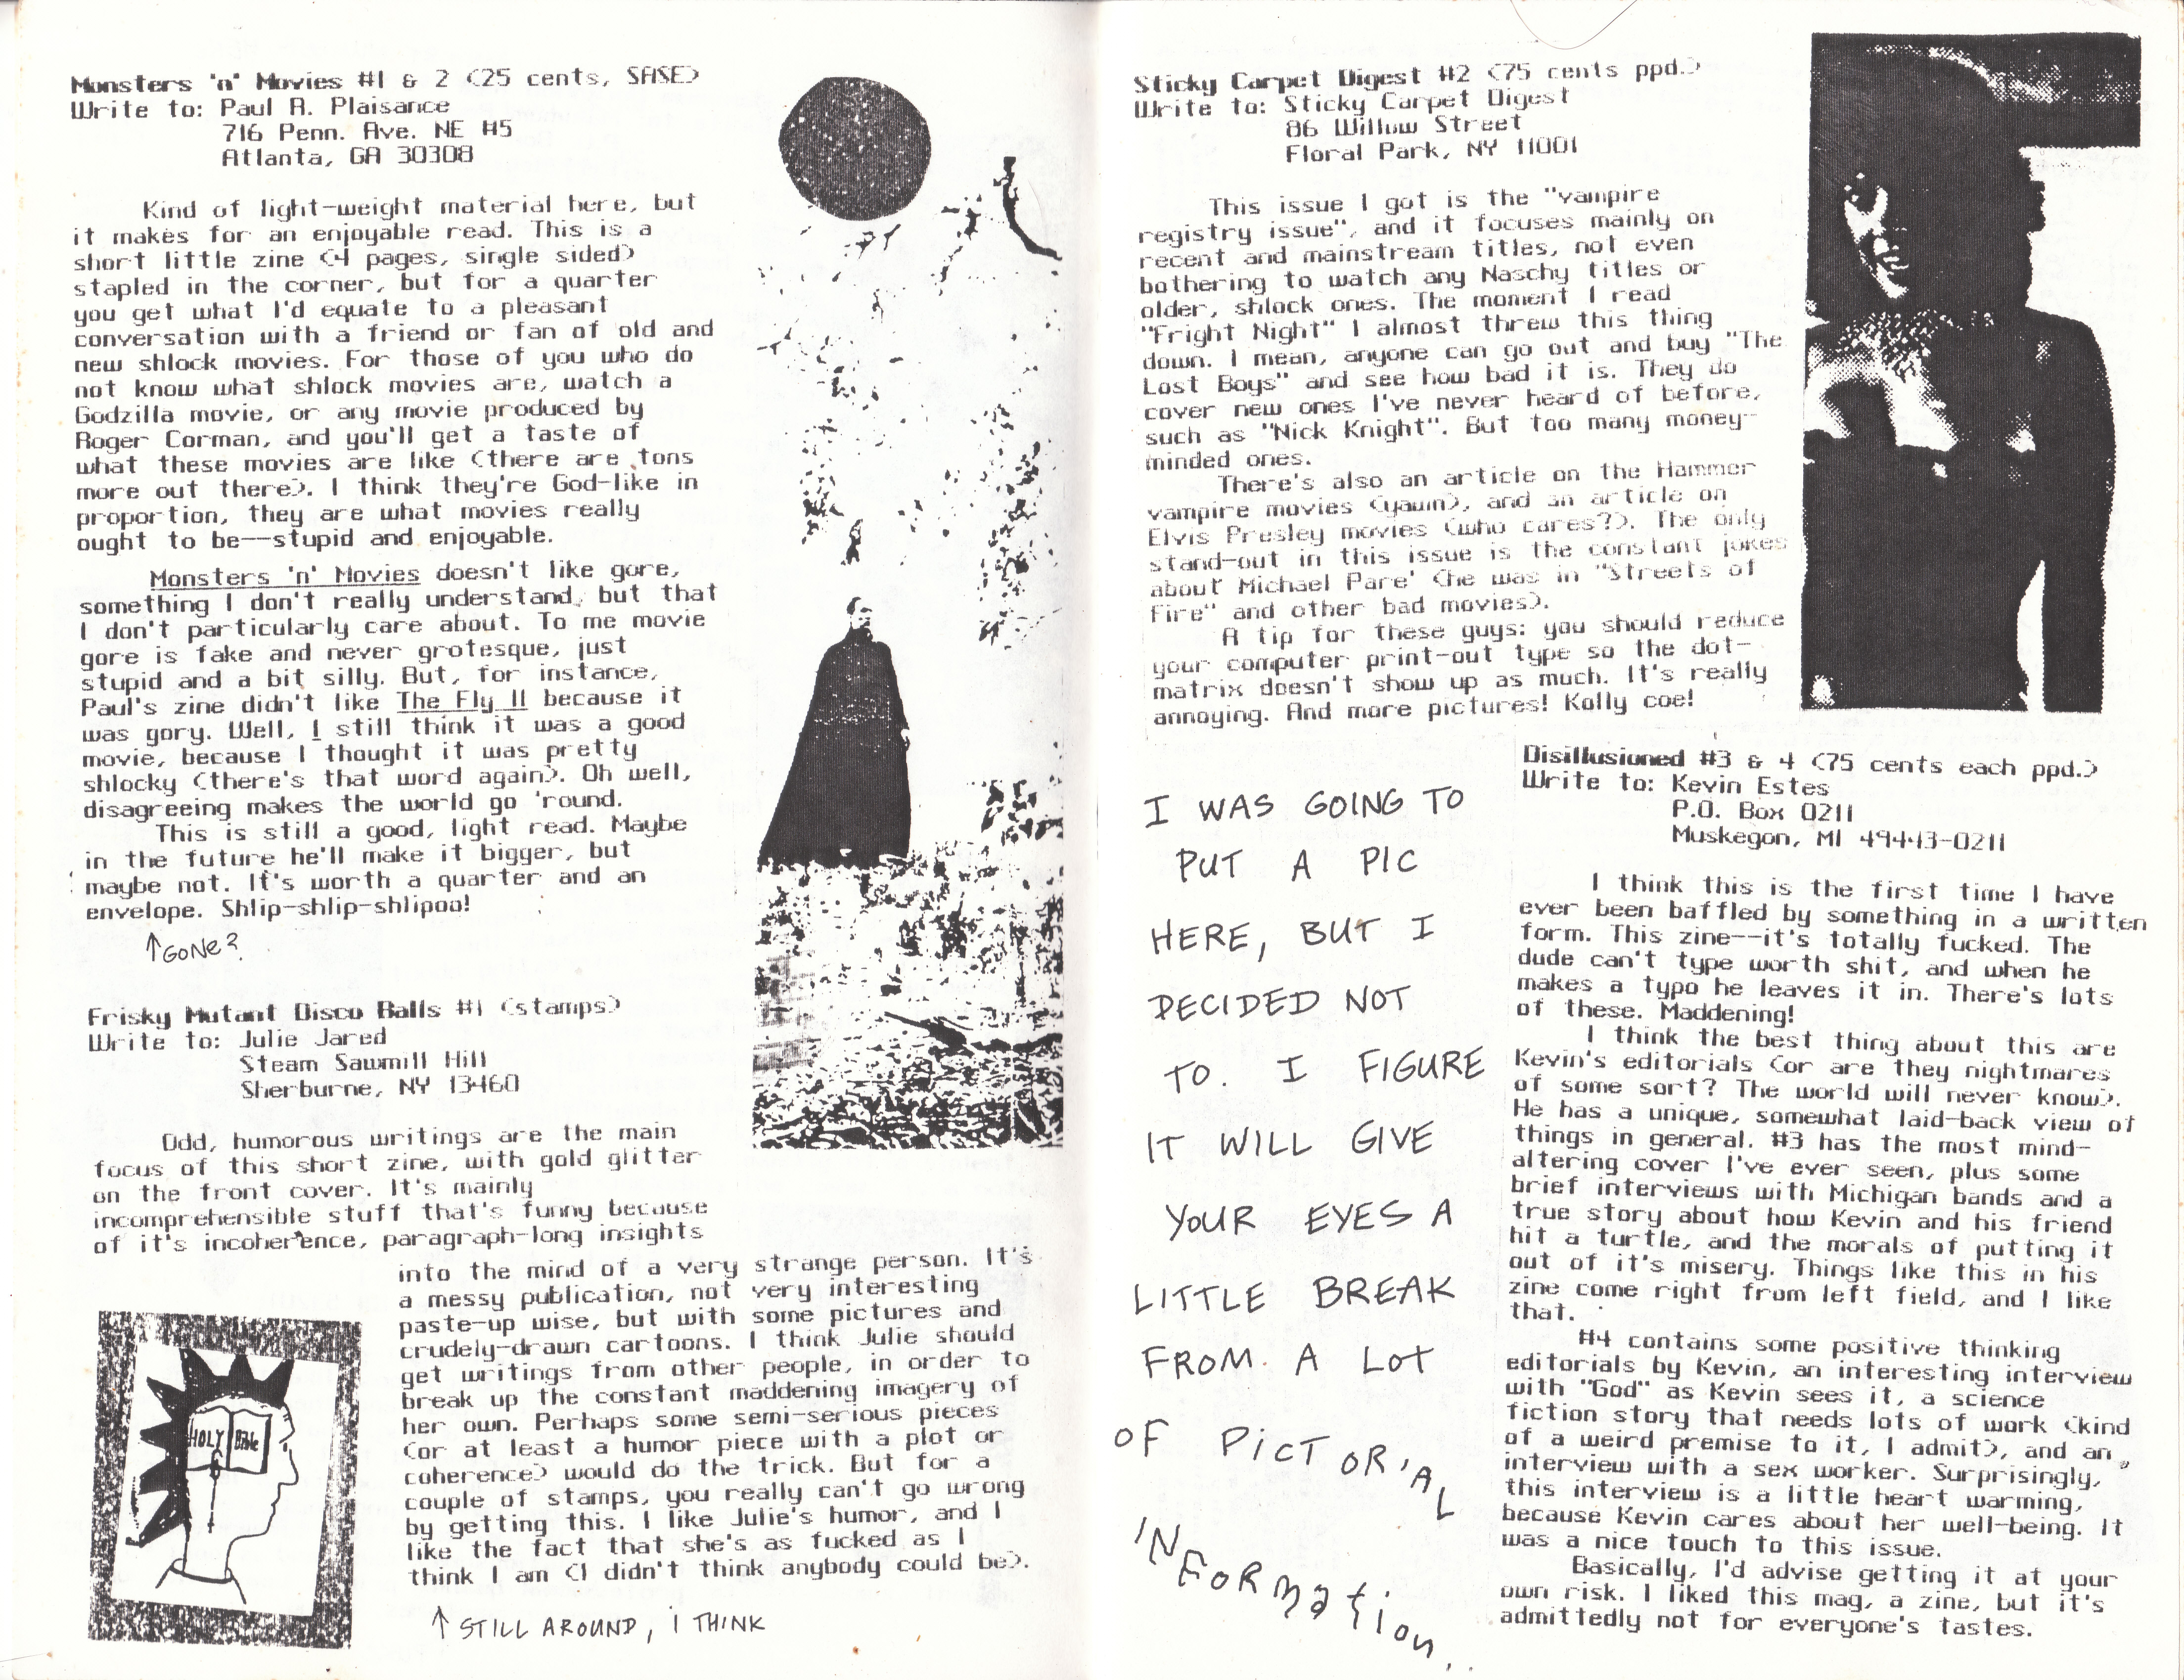 Monsters 'n' Movies #1 & 2 (25 cents, SASE)
Write to: Paul A. Plaisance
716 Penn. Ave. NE #5
Atlanta, GA 30308
Kind of light-weight material here, but
it makes for an enjoyable read. This is a
short little zine (4 pages, single sided)
stapled in the corner, but for a quarter
you get what I'd equate to a pleasant
conversation with a friend or fan of old and
new shlock movies. For those of you who do
not know what shlock movies are, watch a
Godzilla movie, or any movie produced by
Roger Corman, and you'll get a taste of
what these movies are like (there are tons
more out there). I think they're God-like in
proportion, they are what movies really
ought to be--stupid and enjoyable.
Monsters 'n' Movies doesn't like gore,
something I don't really understand, but that
I don't particularly care about. To me movie
gore is fake and never grotesque, just
stupid and a bit silly. But, for instance,
Paul's zine didn't like The Fly II because it
was gory. Well, I still think it was a good
movie, because I thought it was pretty
shlocky (there's that word again). Oh well,
disagreeing makes the world go 'round.
This is still a good, light read. Maybe
in the future he'll make it bigger, but
maybe not. It's worth a quarter and an
envelope. Shlip-shlip-shlipoo!
↑ GONE?
Frisky Mutant Disco Balls #1 (stamps)
Write to: Julie Jared
Steam Sawmill Hill
Sherburne, NY 13460
Odd, humorous writings are the main
focus of this short zine, with gold glitter
on the front cover. It's mainly
incomprehensible stuff that's funny because
of it's incoherence, paragraph-long insights
into the mind of a very strange person. It's
a messy publication, not very interesting
paste-up wise, but with some pictures and
crudely-drawn cartoons. I think Julie should
get writings from other people, in order to
break up the constant maddening imagery of
her own. Perhaps some semi-serious pieces
(or at least a humor piece with a plot or
coherence) would do the trick. But for a
couple of stamps, you really can't go wrong
by getting this. I like Julie's humor, and I
like the fact that she's as fucked as I
think I am (I didn't think anybody could be).
HOLY Bible
↑ STILL AROUND, I THINK
Sticky Carpet Digest #2 (75 cents ppd.)
Write to: Sticky Carpet Digest
86 Willow Street
Floral Park, NY 11001
This issue I got is the "vampire
registry issue", and it focuses mainly on
recent and mainstream titles, not even
bothering to watch any Naschy titles or
older, shlock ones. The moment I read
"Fright Night" I almost threw this thing
down. I mean, anyone can go out and buy "The
Lost Boys" and see how bad it is. They do
cover new ones I've never heard of before,
such as "Nick Knight". But too many money-
minded ones.
There's also an article on the Hammer
vampire movies (yawn), and an article on
Elvis Presley movies (who cares?). The only
stand-out in this issue is the constant jokes
about Michael Pare' (he was in "Streets of
Fire" and other bad movies).
A tip for these guys: you should reduce
your computer print-out type so the dot-
matrix doesn't show up as much. It's really
annoying. And more pictures! Kolly coe!
I WAS GOING TO
PUT A PIC
HERE, BUT I
DECIDED NOT
TO. I FIGURE
IT WILL GIVE
YOUR EYES A
LITTLE BREAK
FROM A LOT
OF PICTORIAL
INFORMATION.
Disillusioned #3 & 4 (75 cents each ppd.)
Write to: Kevin Estes
P.O. Box 0211
Muskegon, MI 49443-0211
I think this is the first time I have
ever been baffled by something in a written
form. This zine--it's totally fucked. The
dude can't type worth shit, and when he
makes a typo he leaves it in. There's lots
of these. Maddening!
I think the best thing about this are
Kevin's editorials (or are they nightmares
of some sort? The world will never know).
He has a unique, somewhat laid-back view of
things in general. #3 has the most mind-
altering cover I've ever seen, plus some
brief interviews with Michigan bands and a
true story about how Kevin and his friend
hit a turtle, and the morals of putting it
out of it's misery. Things like this in his
zine come right from left field, and I like
that.
#4 contains some positive thinking
editorials by Kevin, an interesting interview
with "God" as Kevin sees it, a science
fiction story that needs lots of work (kind
of a weird premise to it, I admit), and an
interview with a sex worker. Surprisingly,
this interview is a little heart warming,
because Kevin cares about her well-being. It
was a nice touch to this issue.
Basically, I'd advise getting it at your
own risk. I liked this mag, a zine, but it's
admittedly not for everyone's tastes.